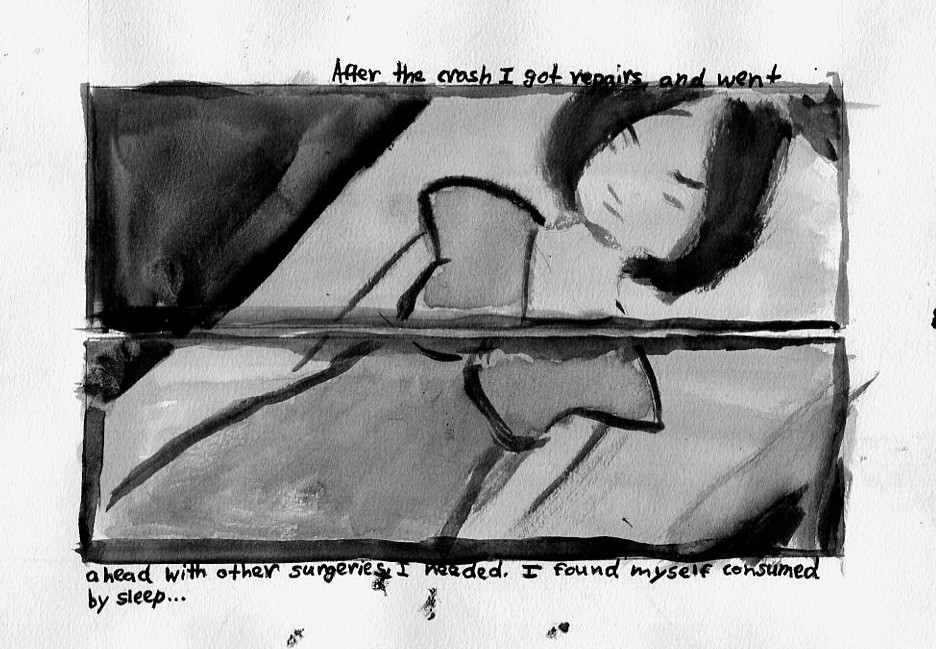 After the crash I got repairs, and went
ahead with other surgeries I needed. I found myself consumed
by sleep...